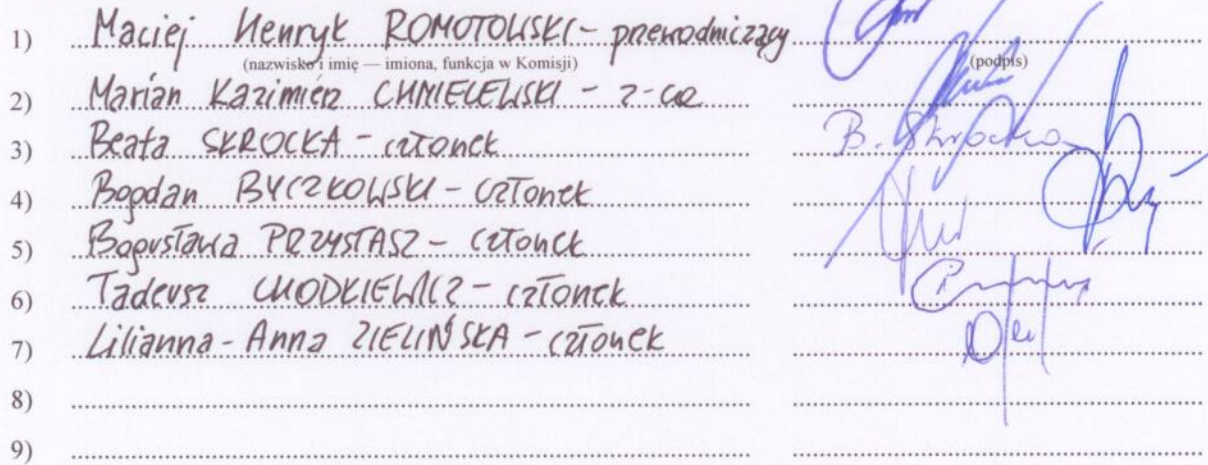 1) Maciej Henryk ROMOTOWSKI - przewodniczący
(nazwisko i imię — imiona, funkcja w Komisji) (podpis)
2) Marian Kazimierz CHMIELEWSKI - z-ca
3) Beata SKROCKA - członek B. Skrocka
4) Bogdan BYCZKOWSKI - członek
5) Bogusława PRZYSTASZ - członek
6) Tadeusz CHODKIEWICZ - członek
7) Lilianna - Anna ZIELIŃSKA - członek
8)
9)